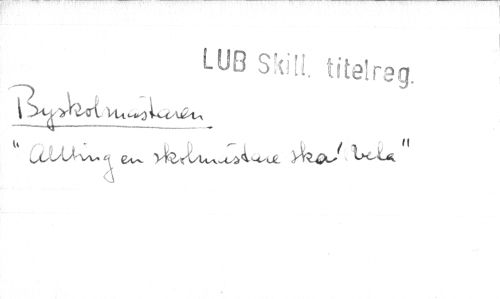 LUB Skill. titelreg.
Byskolmästaren.
"Allting en skolmästare ska' veta"